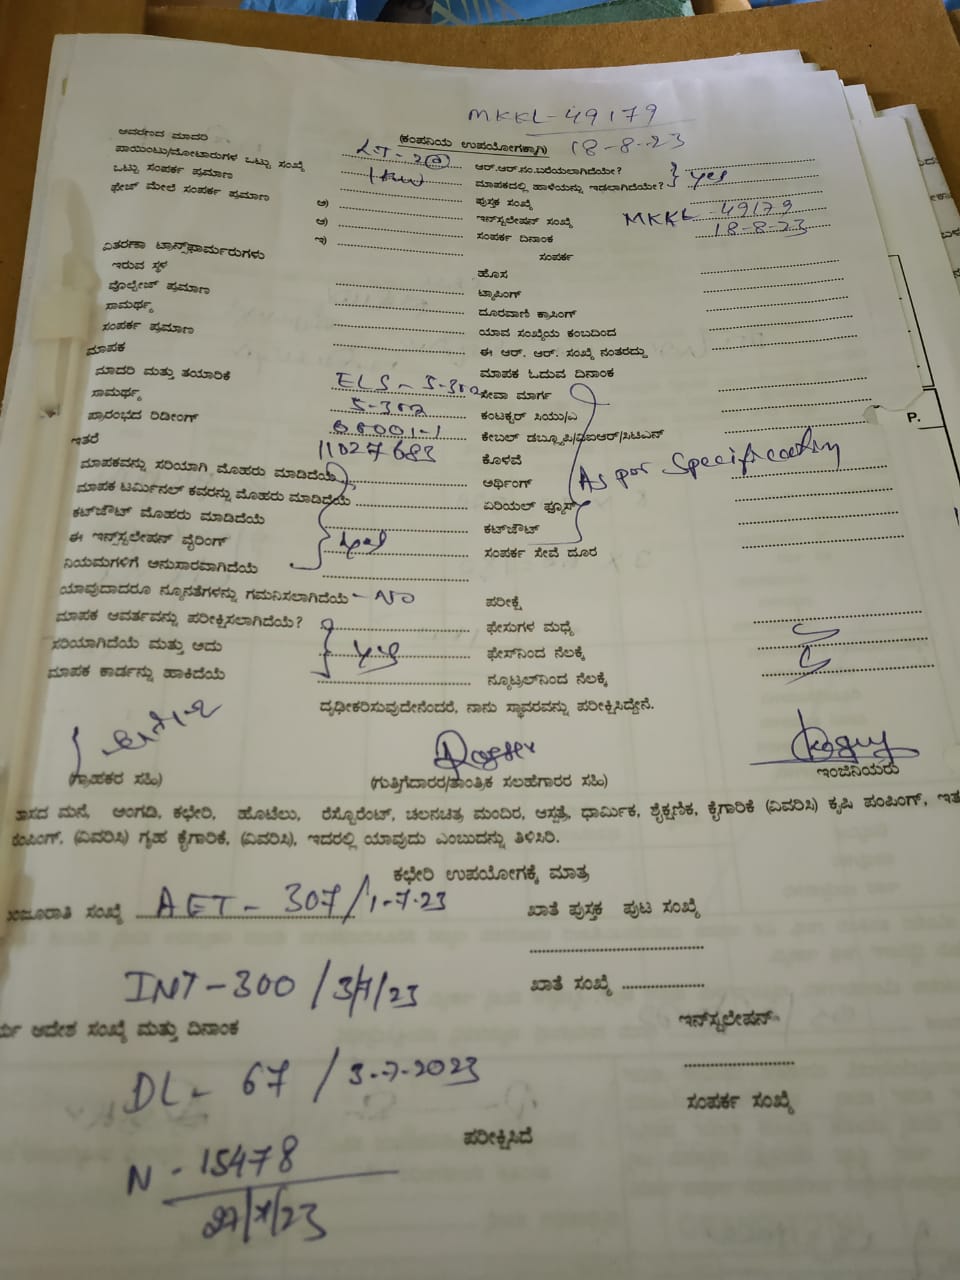 MKKL-49179
(ಕಂಪನಿಯ ಉಪಯೋಗಕ್ಕಾಗಿ) 18-8-23
ಆವರಣದ ಮಾದರಿ LT-2(a) ಆರ್.ಆರ್.ನಂ.ಬರೆಯಲಾಗಿದೆಯೇ?
ಪಾಯಿಂಟು/ಮೋಟಾರುಗಳ ಒಟ್ಟು ಸಂಖ್ಯೆ ಮಾಪಕದಲ್ಲಿ ಹಾಳೆಯನ್ನು ಇಡಲಾಗಿದೆಯೇ? } yes
ಒಟ್ಟು ಸಂಪರ್ಕ ಪ್ರಮಾಣ ಪುಸ್ತಕ ಸಂಖ್ಯೆ
ಫೇಜ್ ಮೇಲೆ ಸಂಪರ್ಕ ಪ್ರಮಾಣ ಅ) ಇನ್‌ಸ್ಟಲೇಷನ್ ಸಂಖ್ಯೆ MKKL-49179
ಆ) ಸಂಪರ್ಕ ದಿನಾಂಕ 18-8-23
ಇ) ಸಂಪರ್ಕ
ವಿತರಣಾ ಟ್ರಾನ್ಸ್‌ಫಾರ್ಮರುಗಳು
ಇರುವ ಸ್ಥಳ ಹೊಸ
ವೊಲ್ಟೇಜ್ ಪ್ರಮಾಣ ಟ್ಯಾಪಿಂಗ್
ಸಾಮರ್ಥ್ಯ ದೂರವಾಣಿ ಕ್ರಾಸಿಂಗ್
ಸಂಪರ್ಕ ಪ್ರಮಾಣ ಯಾವ ಸಂಖ್ಯೆಯ ಕಂಬದಿಂದ
ಮಾಪಕ ಈ ಆರ್. ಆರ್. ಸಂಖ್ಯೆ ನಂತರದ್ದು
ಮಾದರಿ ಮತ್ತು ತಯಾರಿಕೆ ಮಾಪಕ ಓದುವ ದಿನಾಂಕ
ಸಾಮರ್ಥ್ಯ ELS-5-30 ಸೇವಾ ಮಾರ್ಗ
ಪ್ರಾರಂಭದ ರಿಡೀಂಗ್ 5-30 ಕಂಟಕ್ಟರ್ ಸಿಯು/ಎ
ಇತರೆ 00001-1 ಕೇಬಲ್ ಡಬ್ಲ್ಯೂಪಿ/ವಿಐಆರ್/ಸಿಟಿಎನ್
11027683 ಕೊಳವೆ
ಮಾಪಕವನ್ನು ಸರಿಯಾಗಿ ಮೊಹರು ಮಾಡಿದೆಯೆ ಅರ್ಥಿಂಗ್ As per Specification
ಮಾಪಕ ಟರ್ಮಿನಲ್ ಕವರನ್ನು ಮೊಹರು ಮಾಡಿದೆಯೆ ಏರಿಯಲ್ ಫ್ಯೂಸ್
ಕಟ್‌ಔಟ್ ಮೊಹರು ಮಾಡಿದೆಯೆ ಕಟ್‌ಔಟ್
ಈ ಇನ್‌ಸ್ಟಲೇಷನ್ ವೈರಿಂಗ್ yes ಸಂಪರ್ಕ ಸೇವೆ ದೂರ
ನಿಯಮಗಳಿಗೆ ಅನುಸಾರವಾಗಿದೆಯೆ
ಯಾವುದಾದರೂ ನ್ಯೂನತೆಗಳನ್ನು ಗಮನಿಸಲಾಗಿದೆಯೆ - NO ಪರೀಕ್ಷೆ
ಮಾಪಕ ಆವರ್ತವನ್ನು ಪರೀಕ್ಷಿಸಲಾಗಿದೆಯೆ? ಫೇಸುಗಳ ಮಧ್ಯೆ
ಸರಿಯಾಗಿದೆಯೆ ಮತ್ತು ಅದು } yes ಫೇಸ್‌ನಿಂದ ನೆಲಕ್ಕೆ
ಮಾಪಕ ಕಾರ್ಡನ್ನು ಹಾಕಿದೆಯೆ ನ್ಯೂಟ್ರಲ್‌ನಿಂದ ನೆಲಕ್ಕೆ
ದೃಢೀಕರಿಸುವುದೇನೆಂದರೆ, ನಾನು ಸ್ಥಾವರವನ್ನು ಪರೀಕ್ಷಿಸಿದ್ದೇನೆ.
(ಗ್ರಾಹಕರ ಸಹಿ) (ಗುತ್ತಿಗೆದಾರರ/ತಾಂತ್ರಿಕ ಸಲಹೆಗಾರರ ಸಹಿ) ಇಂಜಿನಿಯರು
ಮನೆ, ಅಂಗಡಿ, ಕಛೇರಿ, ಹೋಟೆಲು, ರೆಸ್ಟೊರೆಂಟ್, ಚಲನಚಿತ್ರ ಮಂದಿರ, ಆಸ್ಪತ್ರೆ, ಧಾರ್ಮಿಕ, ಶೈಕ್ಷಣಿಕ, ಕೈಗಾರಿಕೆ (ವಿವರಿಸಿ) ಕೃಷಿ ಪಂಪಿಂಗ್,
(ವಿವರಿಸಿ) ಗೃಹ ಕೈಗಾರಿಕೆ, (ವಿವರಿಸಿ), ಇದರಲ್ಲಿ ಯಾವುದು ಎಂಬುದನ್ನು ತಿಳಿಸಿರಿ.
ಕಛೇರಿ ಉಪಯೋಗಕ್ಕೆ ಮಾತ್ರ
ಸಂಖ್ಯೆ AET-307/1-7-23 ಖಾತೆ ಪುಸ್ತಕ ಪುಟ ಸಂಖ್ಯೆ
INT-300/3/7/23 ಖಾತೆ ಸಂಖ್ಯೆ
ಆದೇಶ ಸಂಖ್ಯೆ ಮತ್ತು ದಿನಾಂಕ ಇನ್‌ಸ್ಟಲೇಷನ್
DL-67/3-7-2023 ಸಂಪರ್ಕ ಸಂಖ್ಯೆ
ಪರೀಕ್ಷಿಸಿದೆ
N-15478
27/7/23
P.